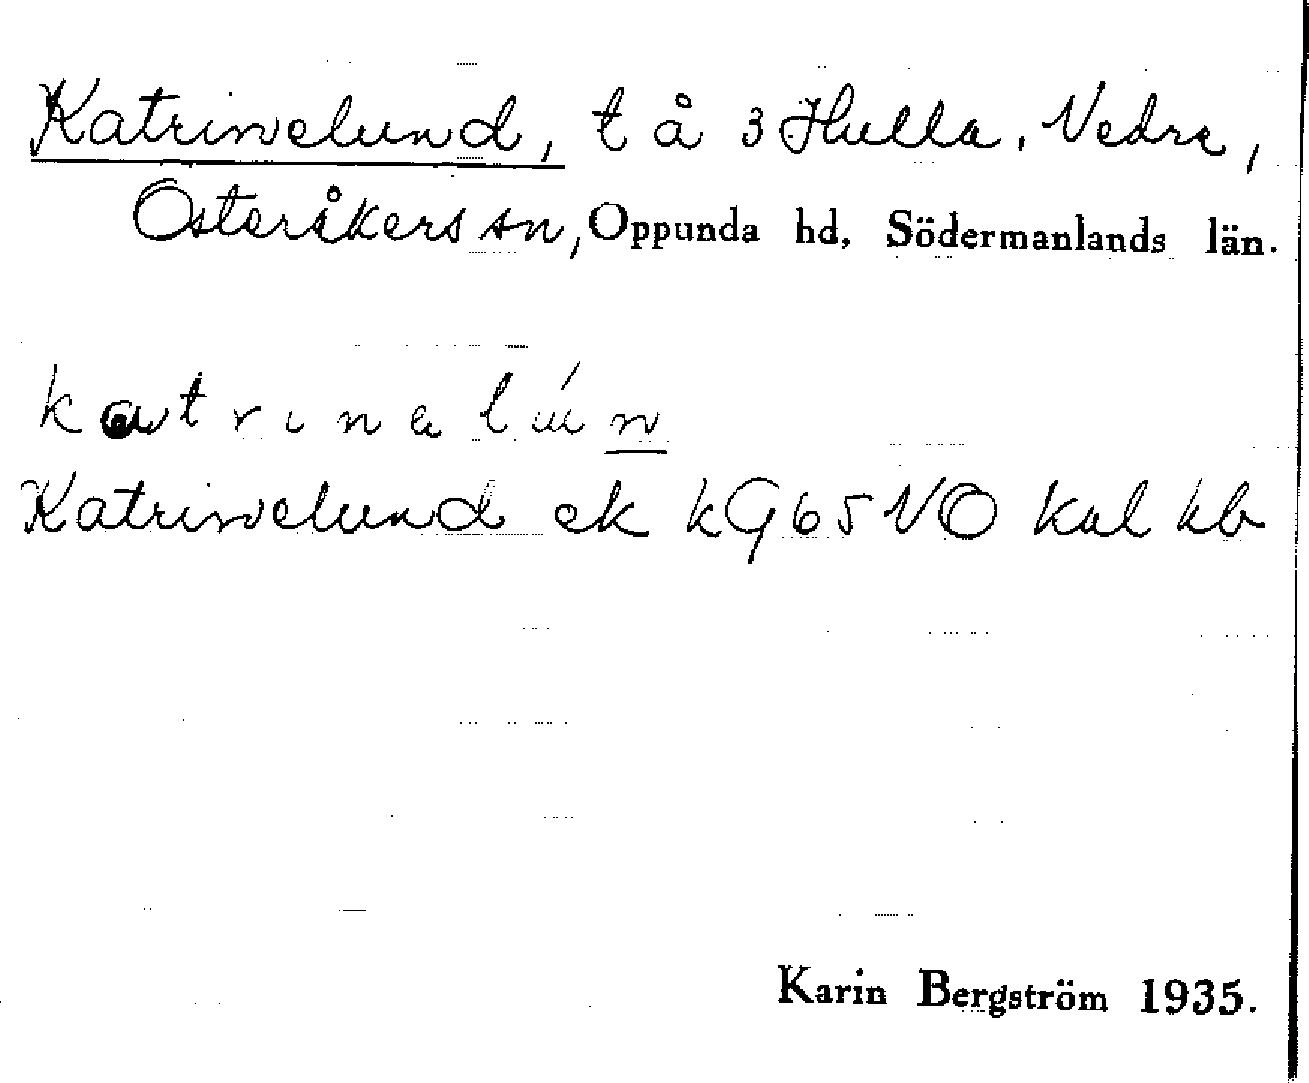 Katrinelund, t å 3 Hulla, Vedra,
Österåkers sn, Oppunda hd, Södermanlands län.
katrinalún
Katrinelund ek kG65NO kal kb
Karin Bergström 1935.